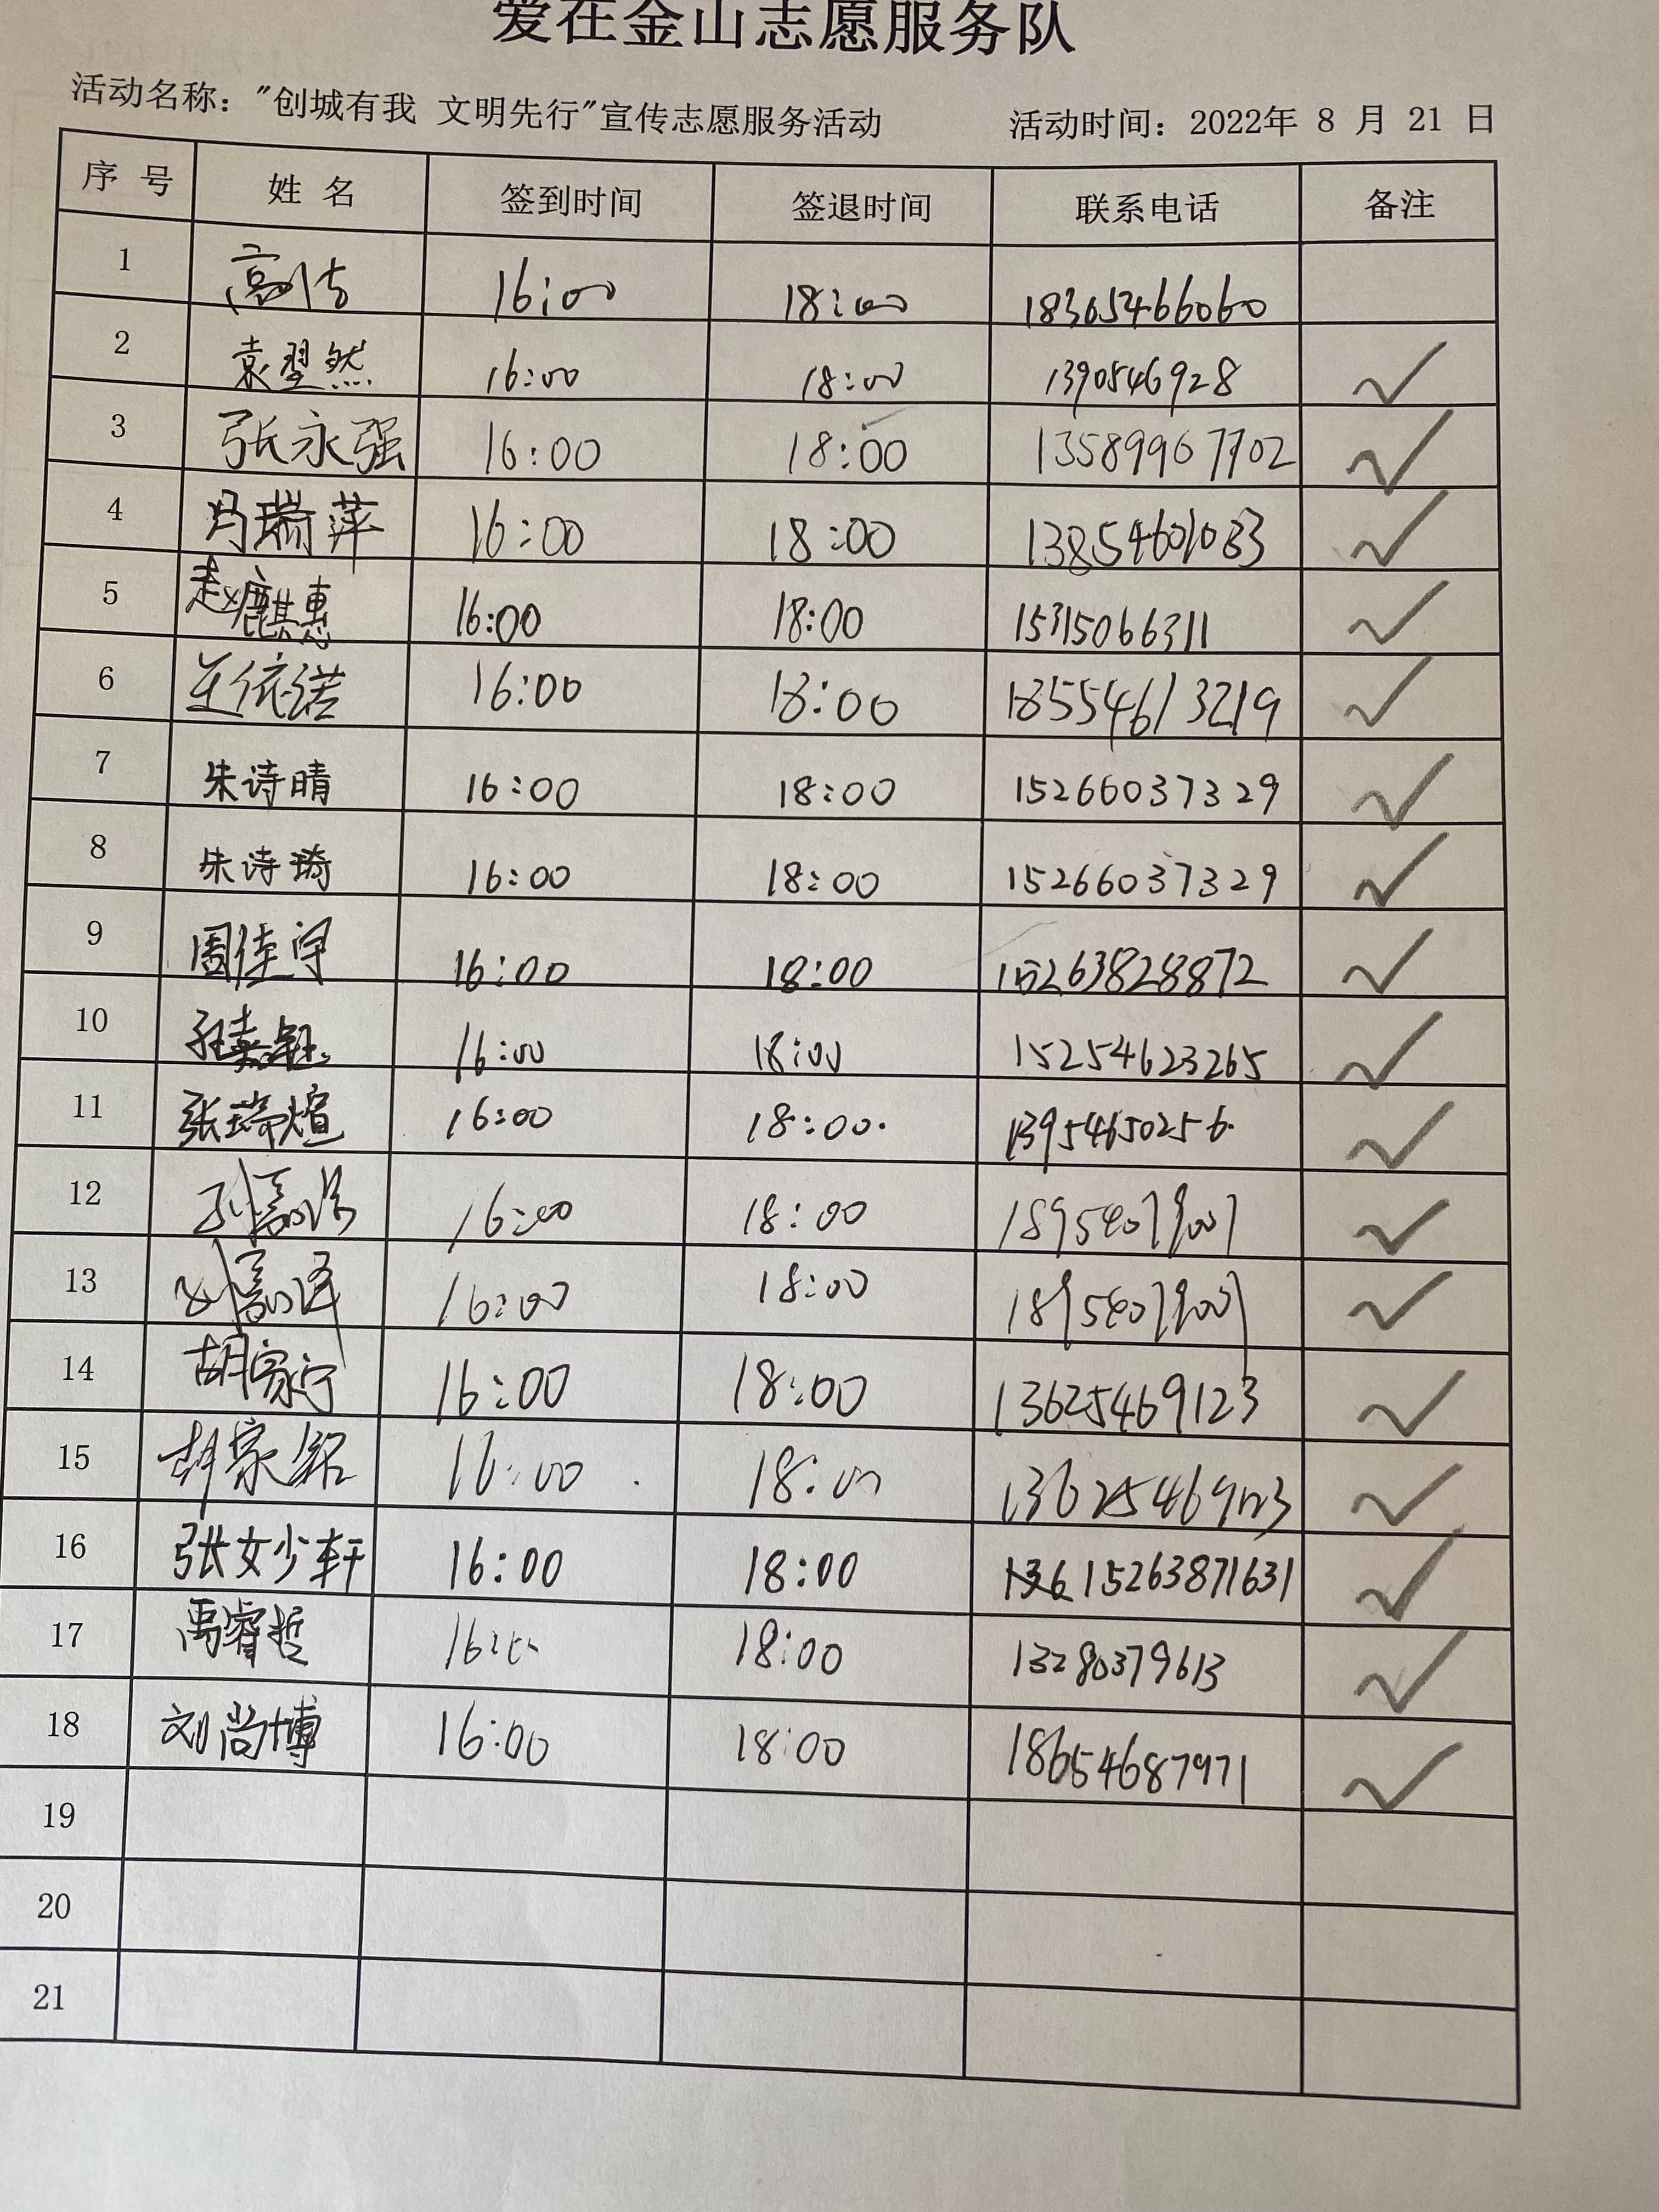 爱在金山志愿服务队
活动名称："创城有我 文明先行"宣传志愿服务活动 活动时间：2022年 8 月 21 日
序 号 姓 名 签到时间 签退时间 联系电话 备注
1 16:00 18:00 18365466060
2 袁翌然 16:00 18:00 1390546928 ✓
3 张永强 16:00 18:00 13589967702 ✓
4 冯瑞萍 16:00 18:00 ✓
5 赵麒惠 16:00 18:00 15315066311 ✓
6 王依诺 16:00 18:00 18554613219 ✓
7 朱诗晴 16:00 18:00 15266037329 ✓
8 朱诗琦 16:00 18:00 15266037329 ✓
9 周佳宇 16:00 18:00 15263828872 ✓
10 16:00 18:00 15254623265 ✓
11 张瑞煊 16:00 18:00. 13954650256. ✓
12 16:00 18:00 ✓
13 16:00 18:00 ✓
14 胡家宁 16:00 18:00 13625469123 ✓
15 胡家铭 16:00 18:00 13625469123 ✓
16 张女少轩 16:00 18:00 15263871631 ✓
17 禹睿哲 16:00 18:00 13280379613 ✓
18 刘尚博 16:00 18:00 18654687971 ✓
19
20
21